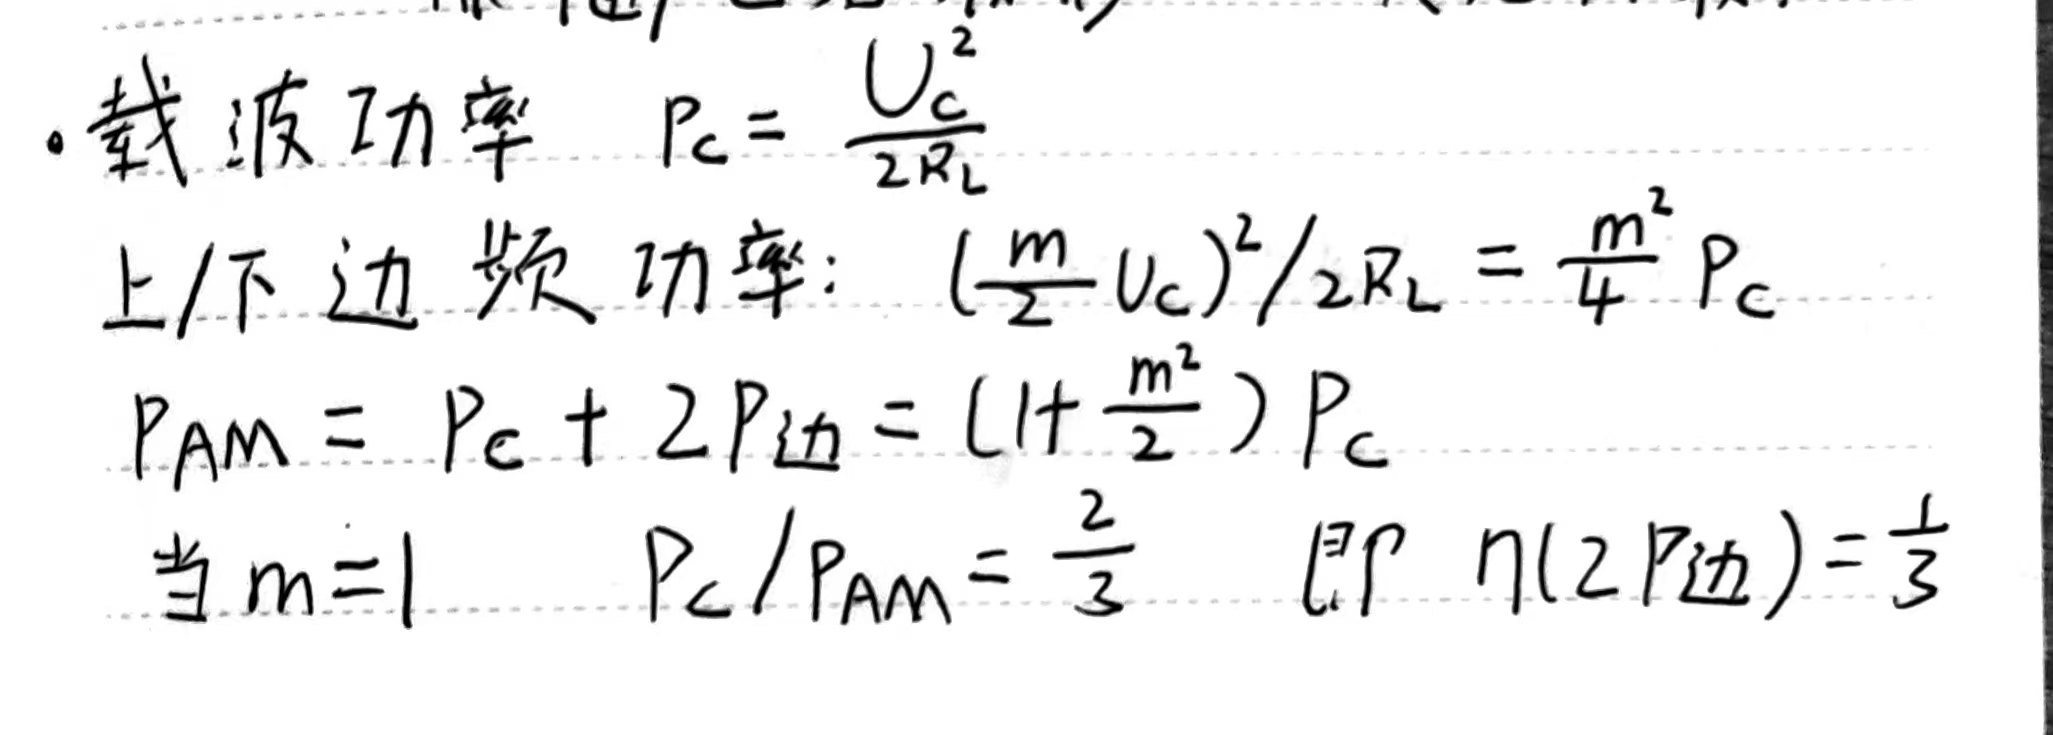 ·载波功率 P_C = U_C²/2R_L
上/下边频功率: (m/2 U_C)²/2R_L = m²/4 P_C
P_AM = P_C + 2P边 = (1+m²/2) P_C
当m=1 P_C/P_AM = 2/3 即 η(2P边) = 1/3